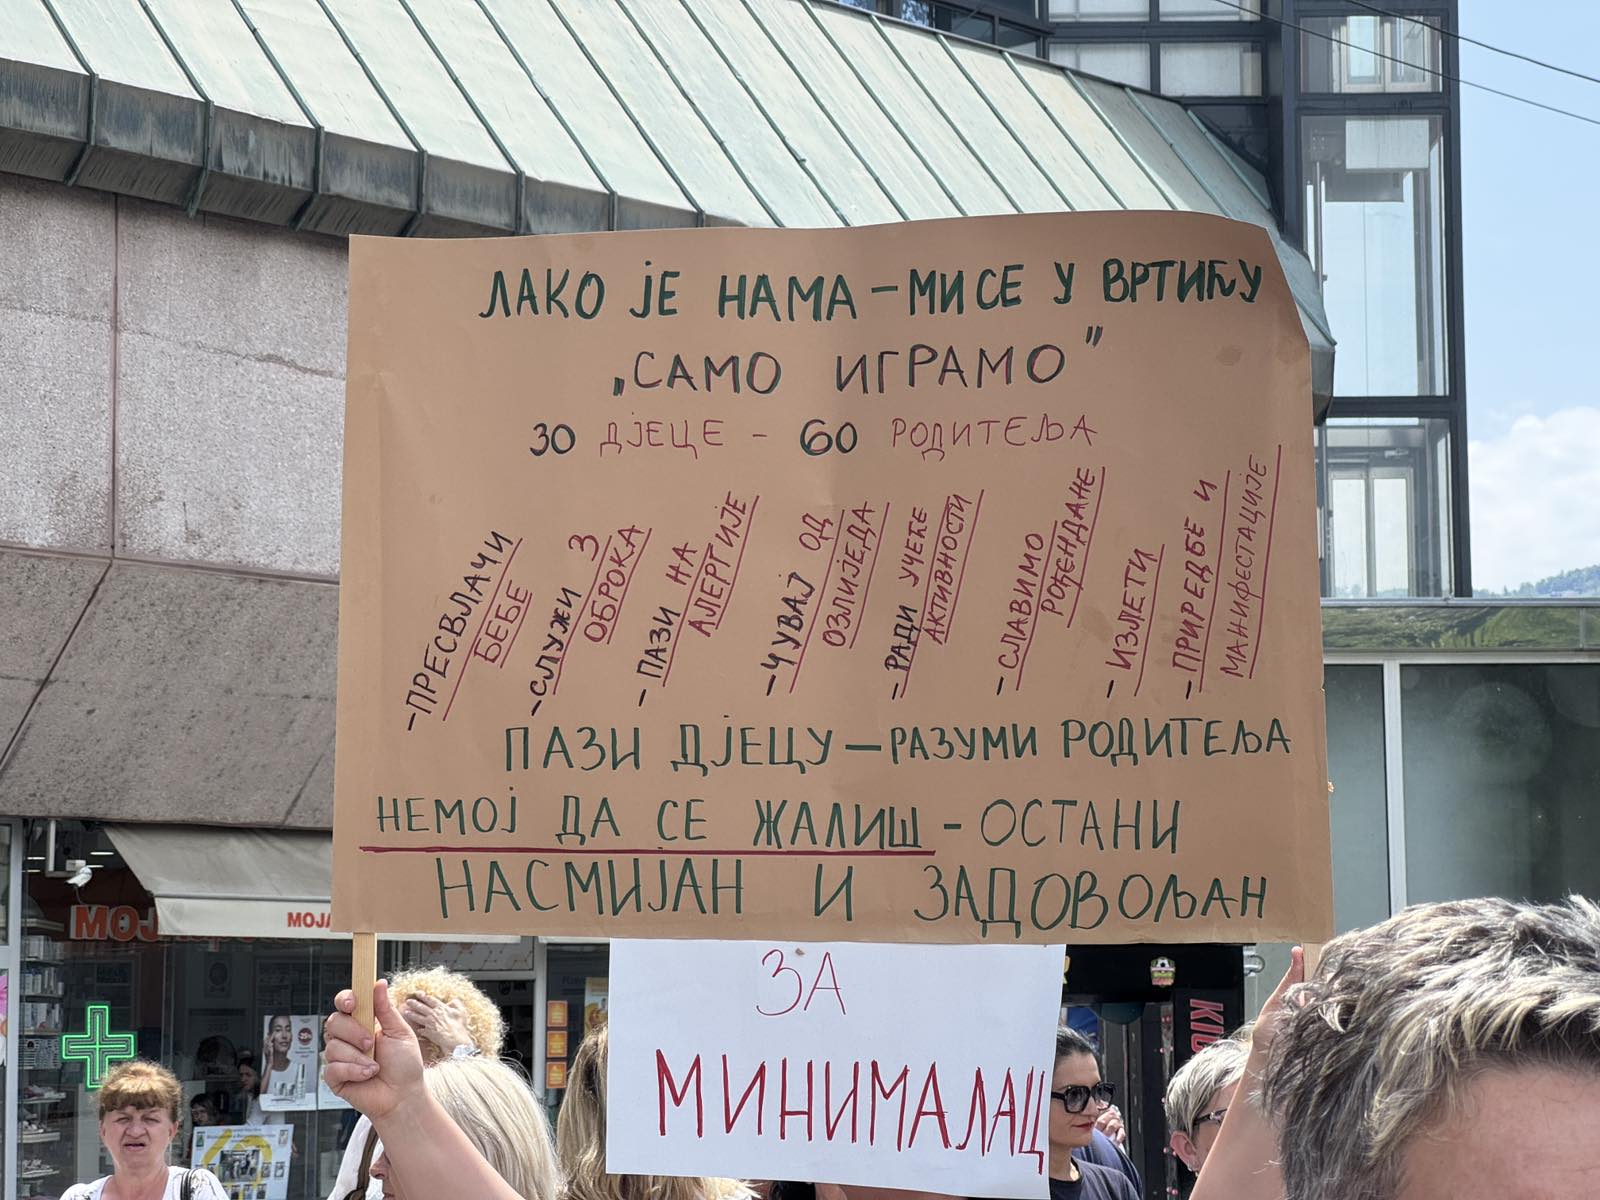 ЛАКО ЈЕ НАМА – МИ СЕ У ВРТИЋУ
„САМО ИГРАМО”
30 ДЈЕЦЕ - 60 РОДИТЕЉА
-ПРЕСВЛАЧИ
БЕБЕ
-СЛУЖИ 3
ОБРОКА
-ПАЗИ НА
АЛЕРГИЈЕ
-ЧУВАЈ ОД
ОЗЛИЈЕДА
-РАДИ УЧЕЋЕ
АКТИВНОСТИ
-СЛАВИМО
РОЂЕНДАНЕ
-ИЗЛЕТИ
-ПРИРЕДБЕ И
МАНИФЕСТАЦИЈЕ
ПАЗИ ДЈЕЦУ – РАЗУМИ РОДИТЕЉА
НЕМОЈ ДА СЕ ЖАЛИШ - ОСТАНИ
НАСМИЈАН И ЗАДОВОЉАН
ЗА
МИНИМАЛАЦ
МОЈА